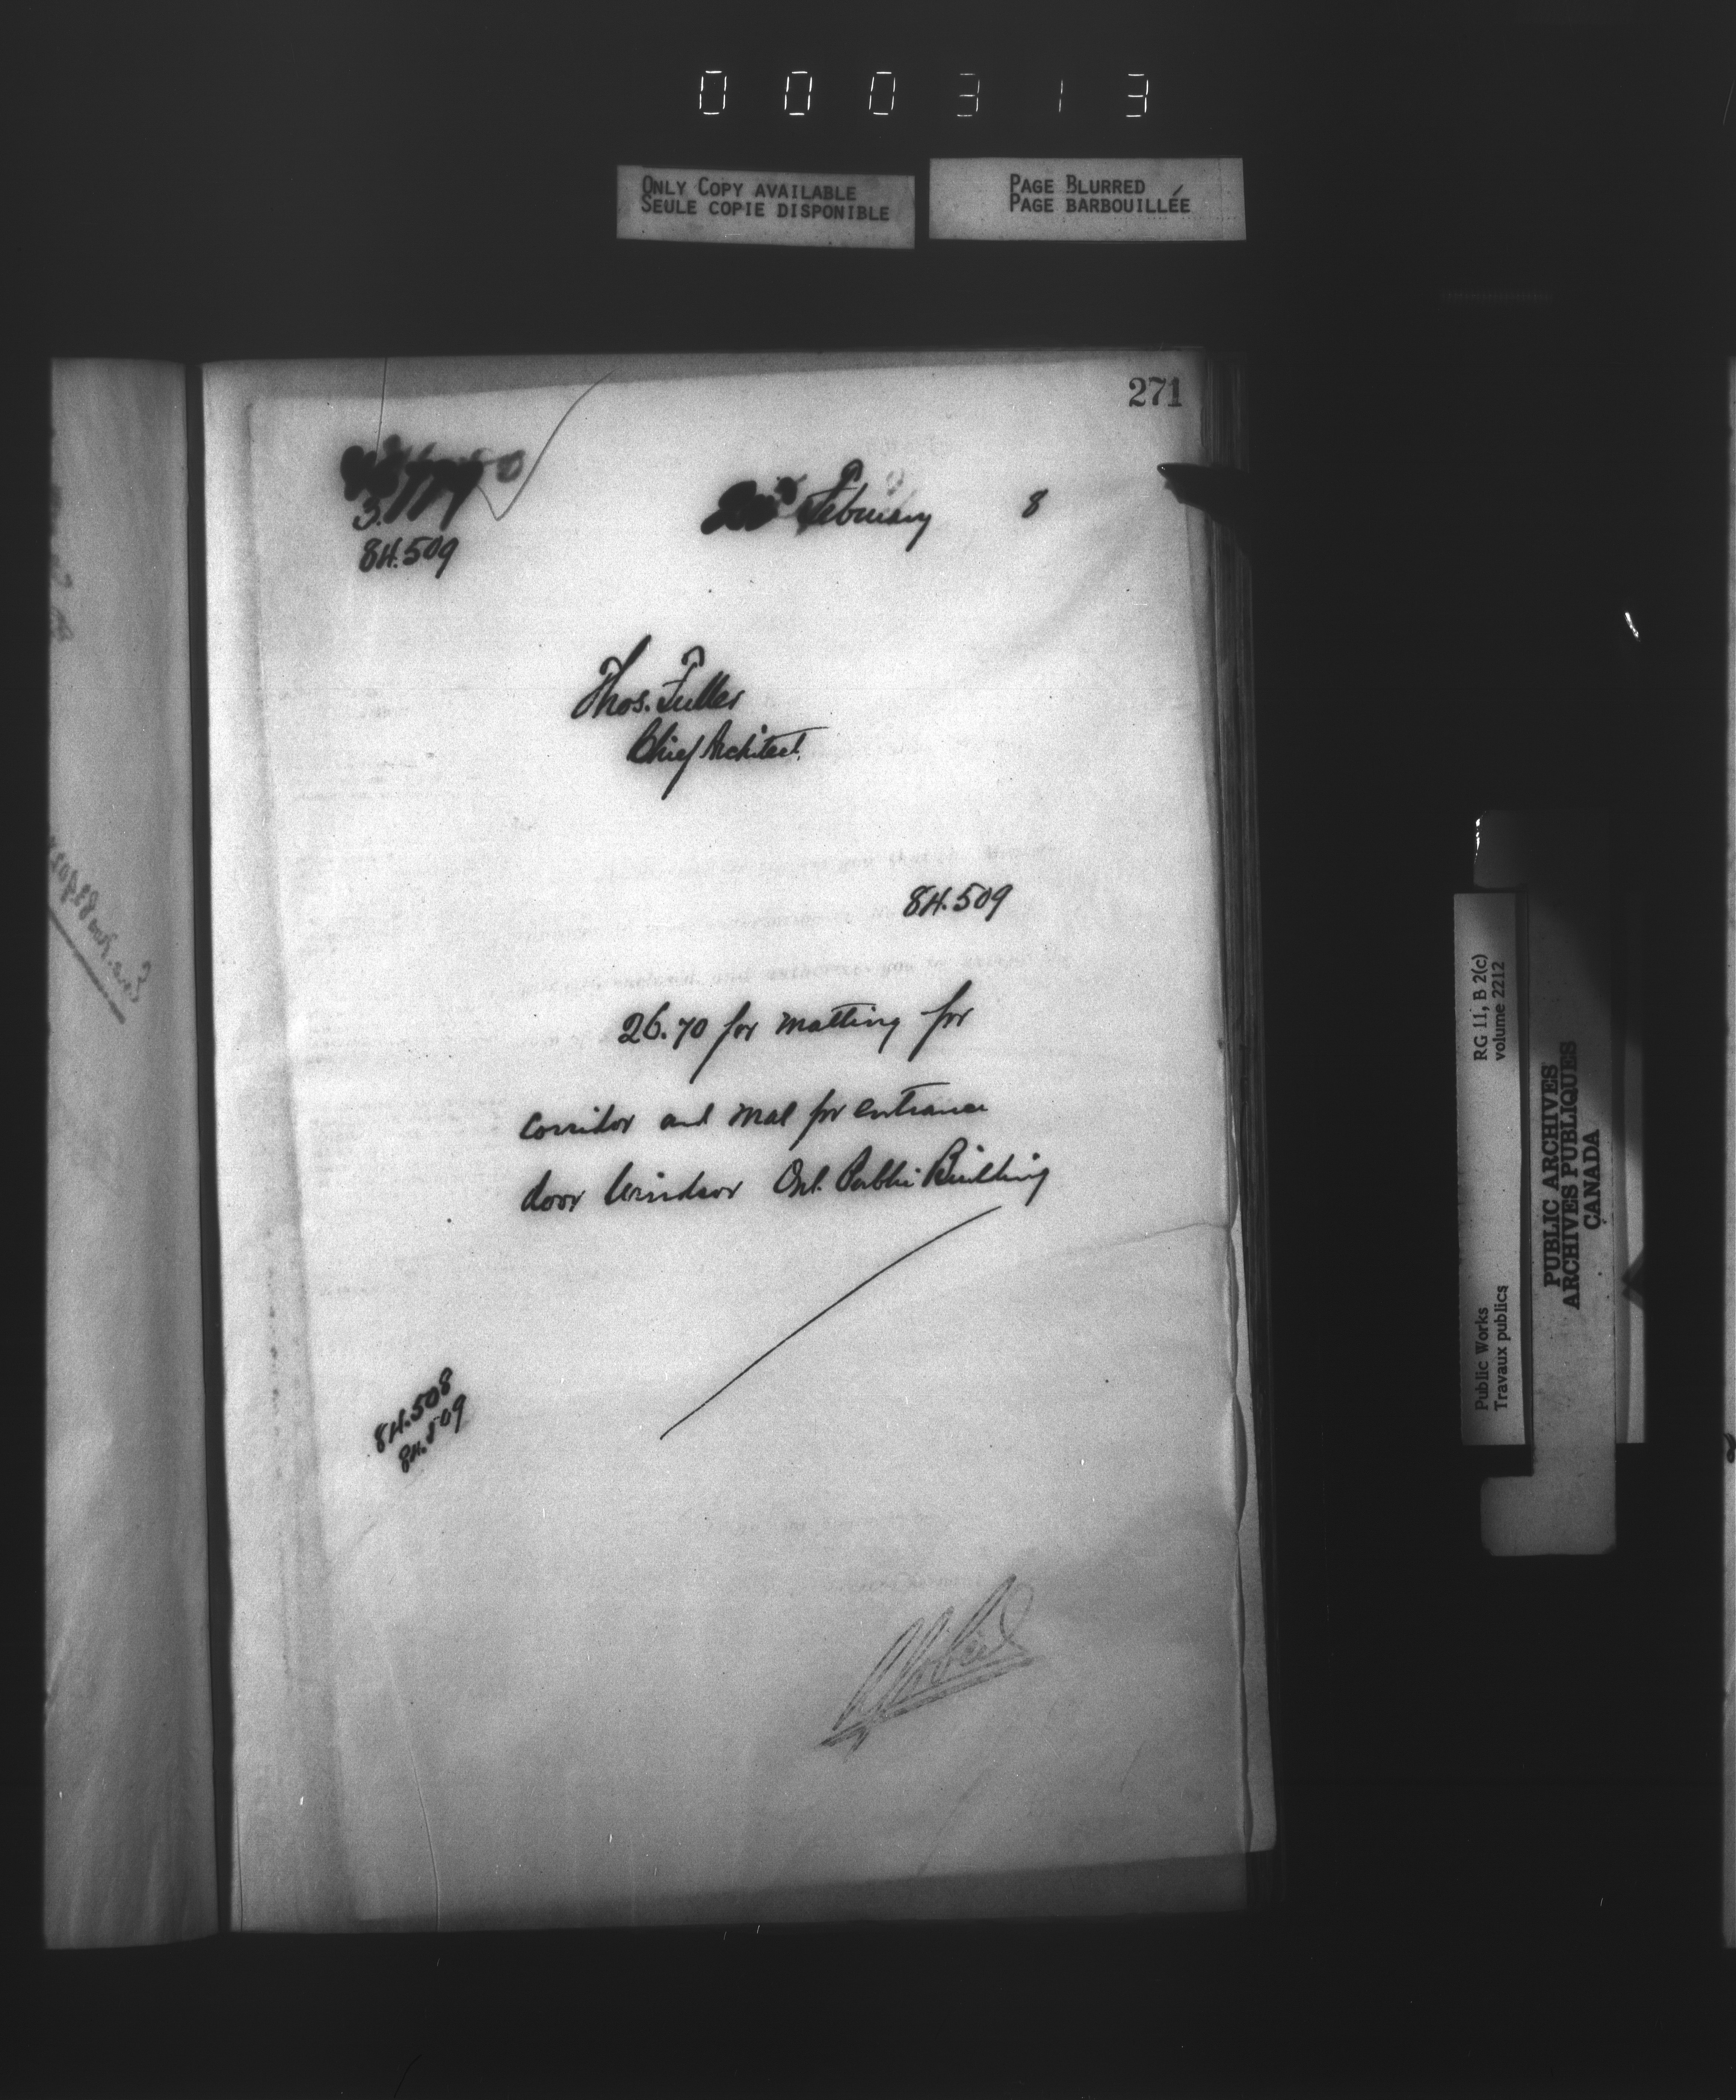 000313
ONLY COPY AVAILABLE
SEULE COPIE DISPONIBLE
PAGE BLURRED
PAGE BARBOUILLÉE
271
84.509
February 8
Thos. Fuller
Chief Architect.
84.509
26.70 for matting for
corridor and mat for entrance
door Windsor Ont. Public Building
84.508
84.509
Public Works
Travaux publics
RG 11, B 2(c)
volume 2212
PUBLIC ARCHIVES
ARCHIVES PUBLIQUES
CANADA